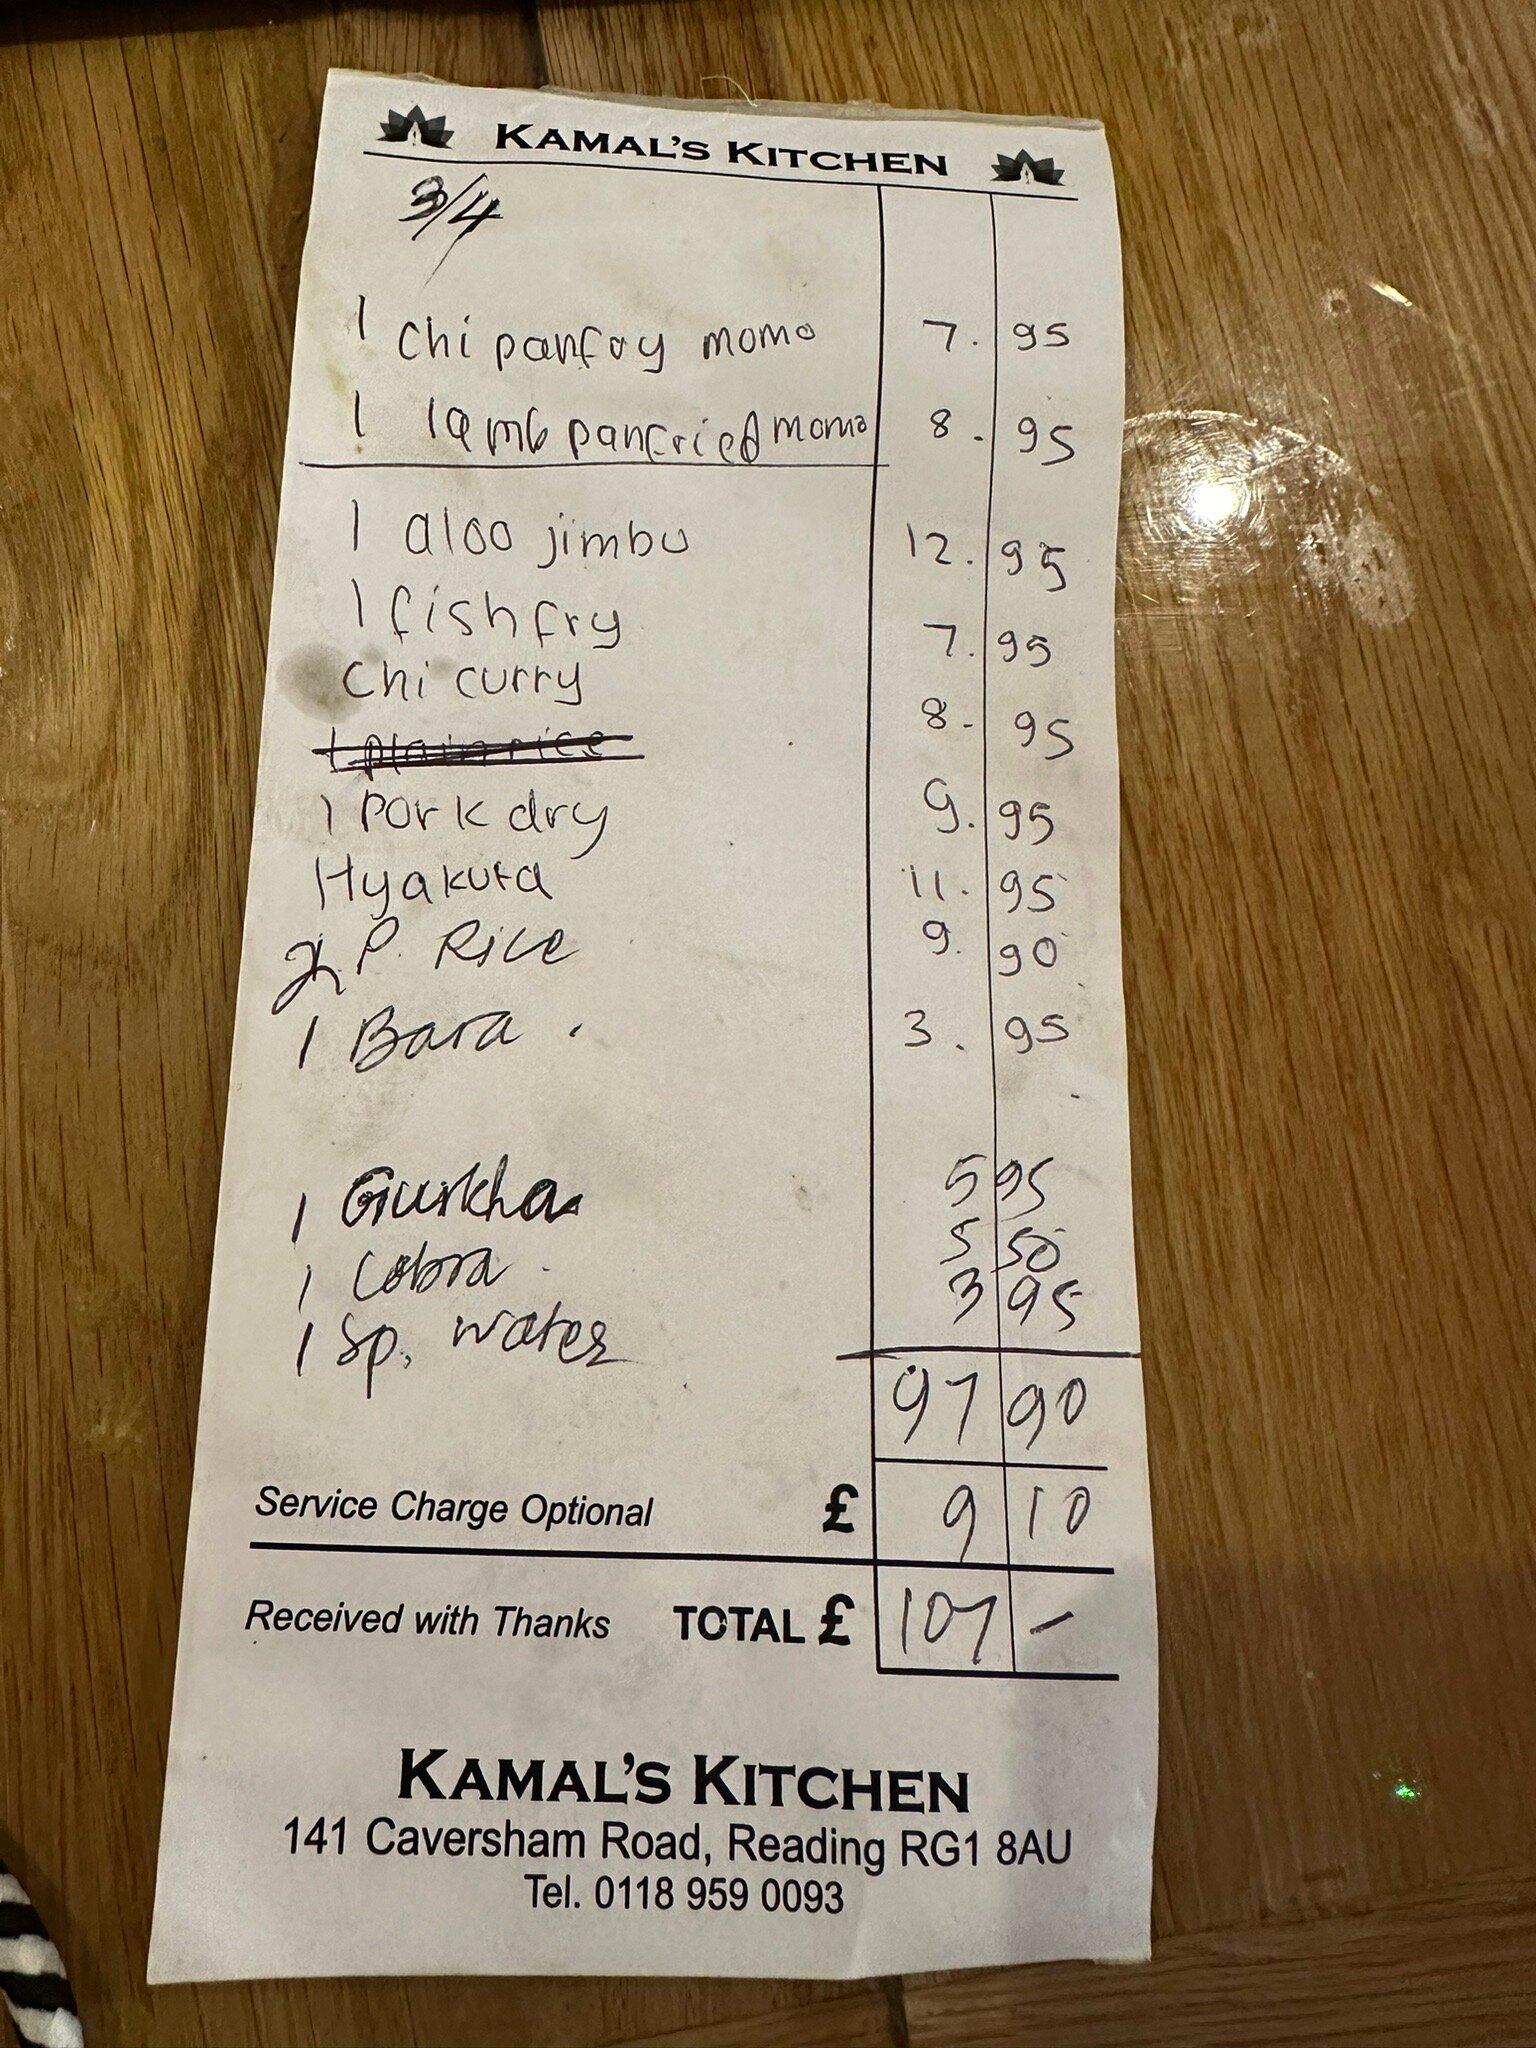 KAMAL'S KITCHEN
3/4
1 Chi panfry momo 7. 95
1 lamb panfried momo 8. 95
1 aloo jimbu 12. 95
1 fish fry 7. 95
Chi curry 8. 95
1 plain rice
1 Pork dry 9. 95
Hyakula 11. 95
2 P. Rice 9. 90
1 Bara. 3. 95
1 Gurkha 5 95
1 Cobra 5 50
1 Sp. water 3 95
97 90
Service Charge Optional £ 9 10
Received with Thanks TOTAL £ 107 -
KAMAL'S KITCHEN
141 Caversham Road, Reading RG1 8AU
Tel. 0118 959 0093